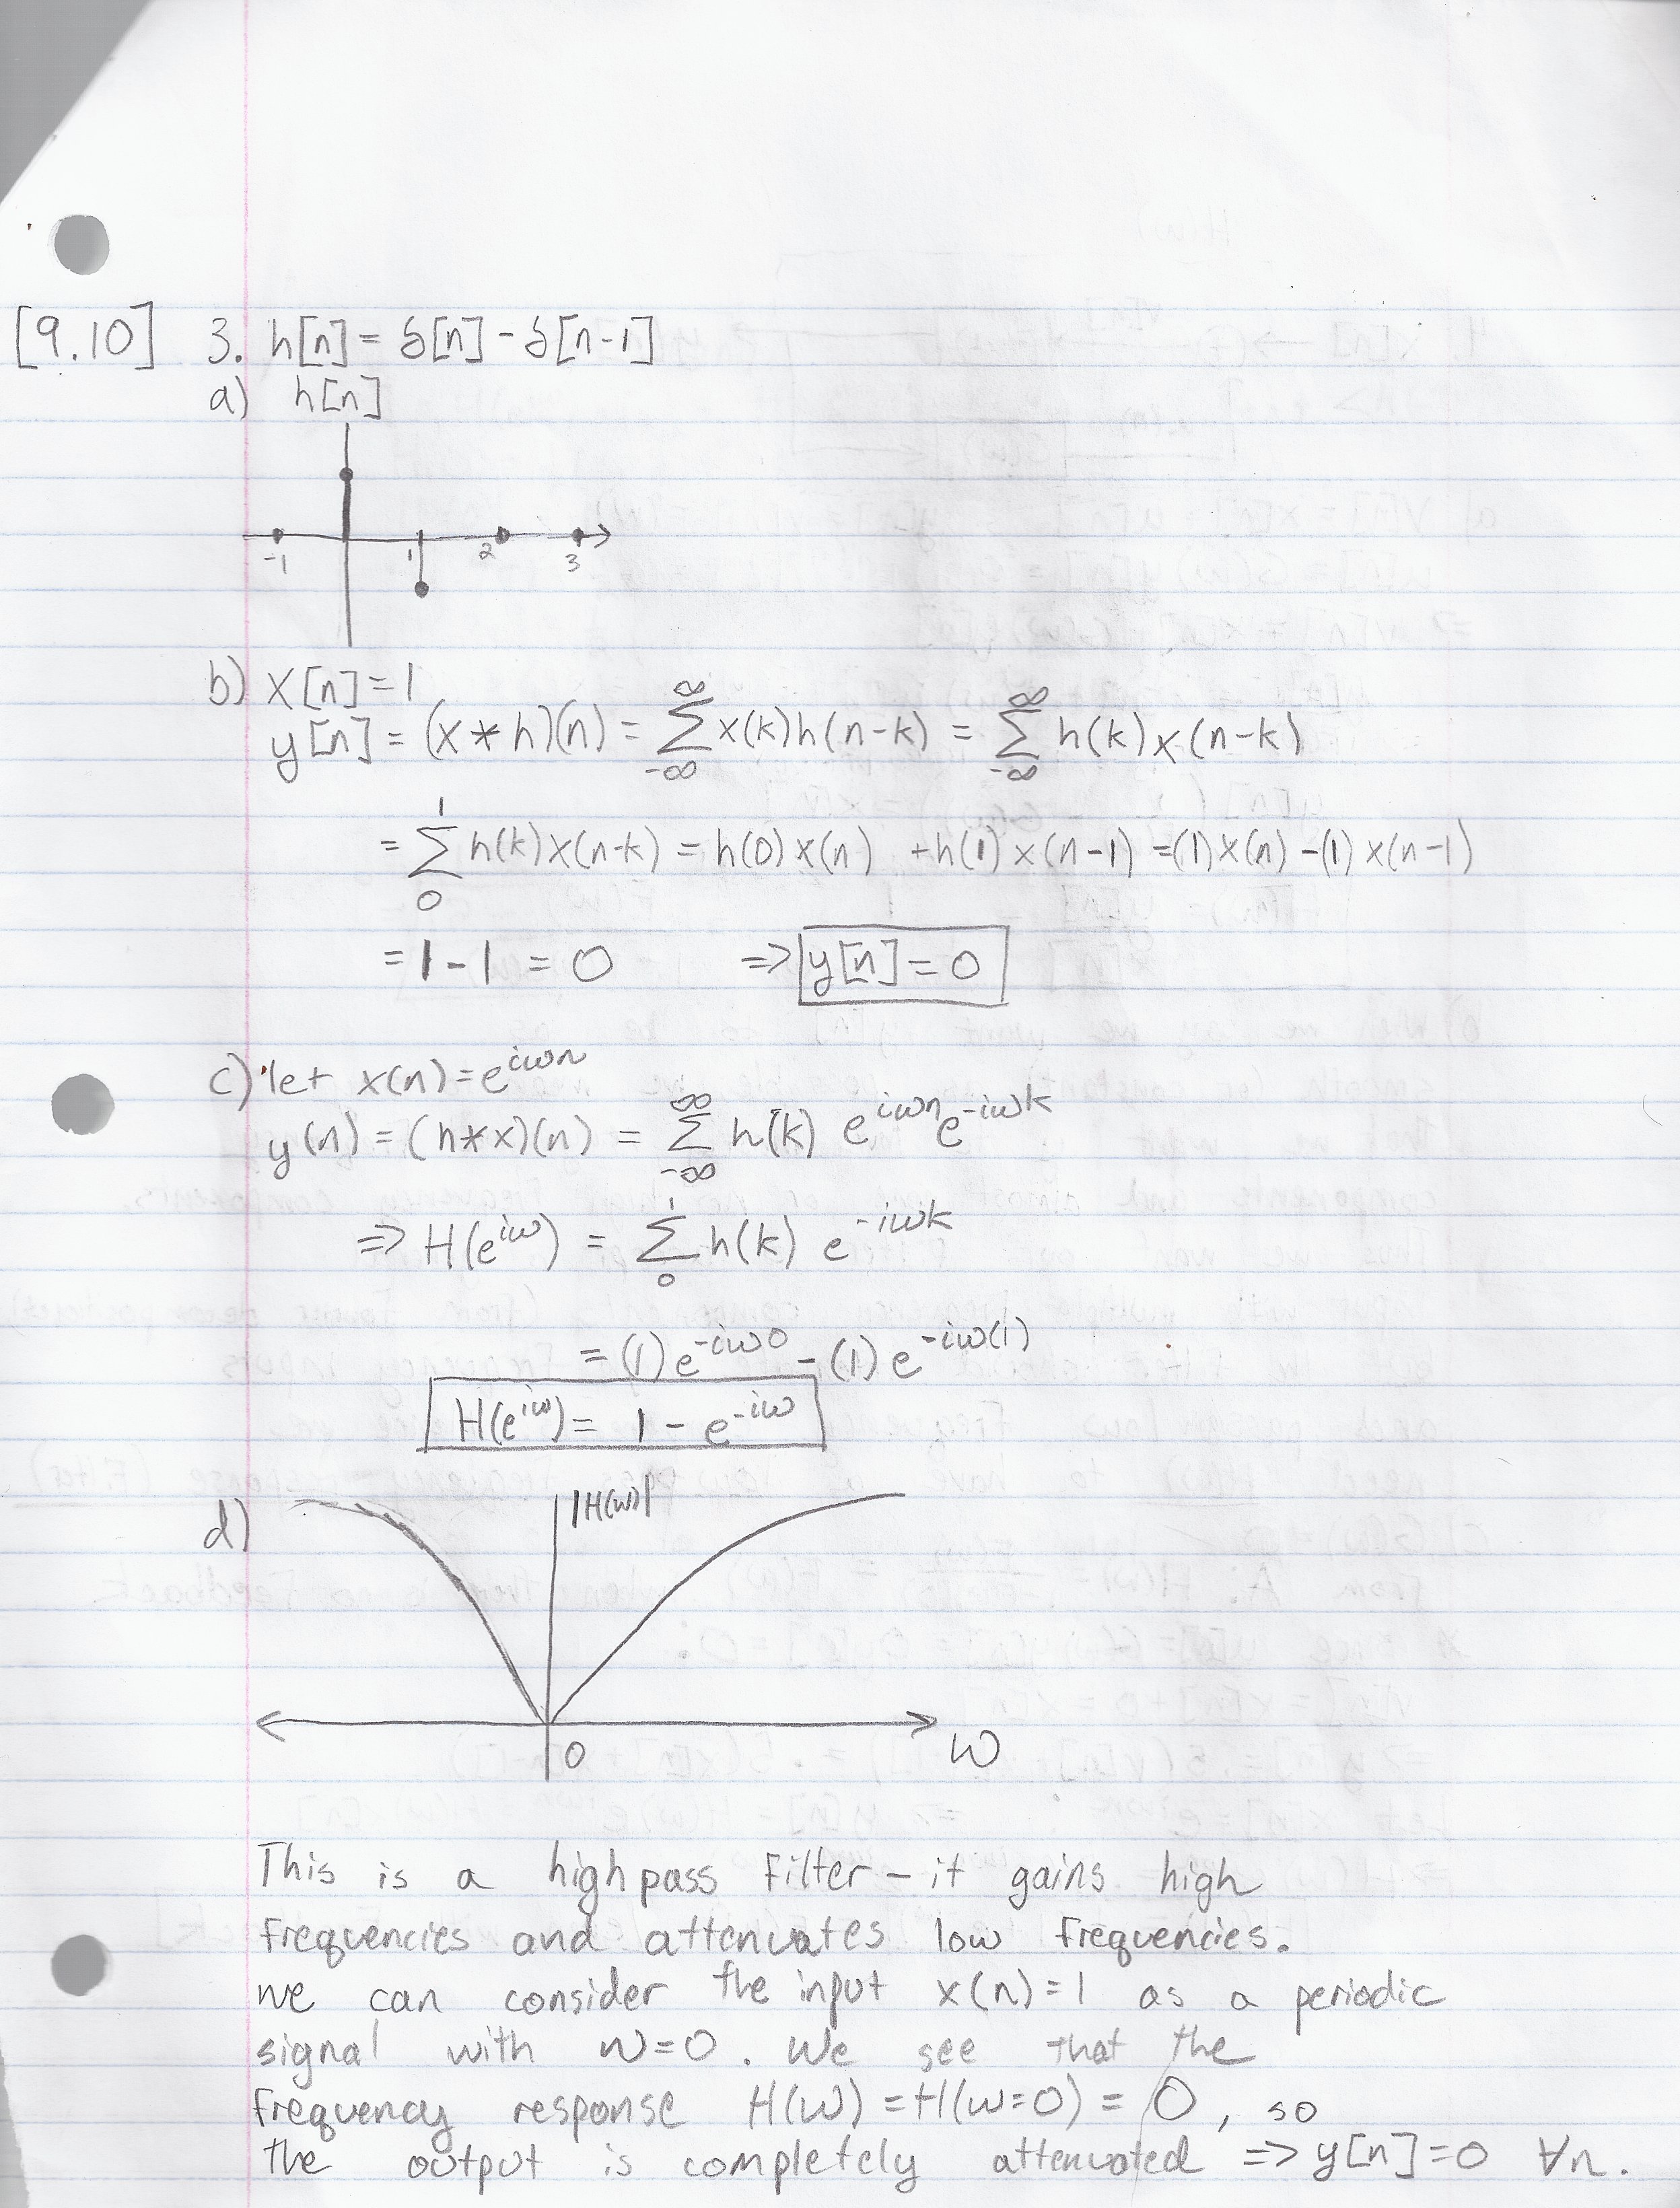 [9.10] 3. h[n] = δ[n] - δ[n-1]
a) h[n]
-1 1 2 3
b) x[n] = 1
y[n] = (x * h)(n) = ∑_{-∞}^{∞} x(k)h(n-k) = ∑_{-∞}^{∞} h(k)x(n-k)
= ∑_{0}^{1} h(k)x(n-k) = h(0)x(n) + h(1)x(n-1) = (1)x(n) - (1)x(n-1)
= 1 - 1 = 0 => y[n] = 0
c) let x(n) = e^{iωn}
y(n) = (h*x)(n) = ∑_{-∞}^{∞} h(k) e^{iωn} e^{-iωk}
=> H(e^{iω}) = ∑_{0}^{1} h(k) e^{-iωk}
= (1)e^{-iω0} - (1)e^{-iω(1)}
H(e^{iω}) = 1 - e^{-iω}
d) |H(ω)|
0 ω
This is a highpass filter - it gains high
frequencies and attenuates low frequencies.
we can consider the input x(n)=1 as a periodic
signal with ω=0. We see that the
frequency response H(ω) = H(ω=0) = 0, so
the output is completely attenuated => y[n]=0 ∀n.